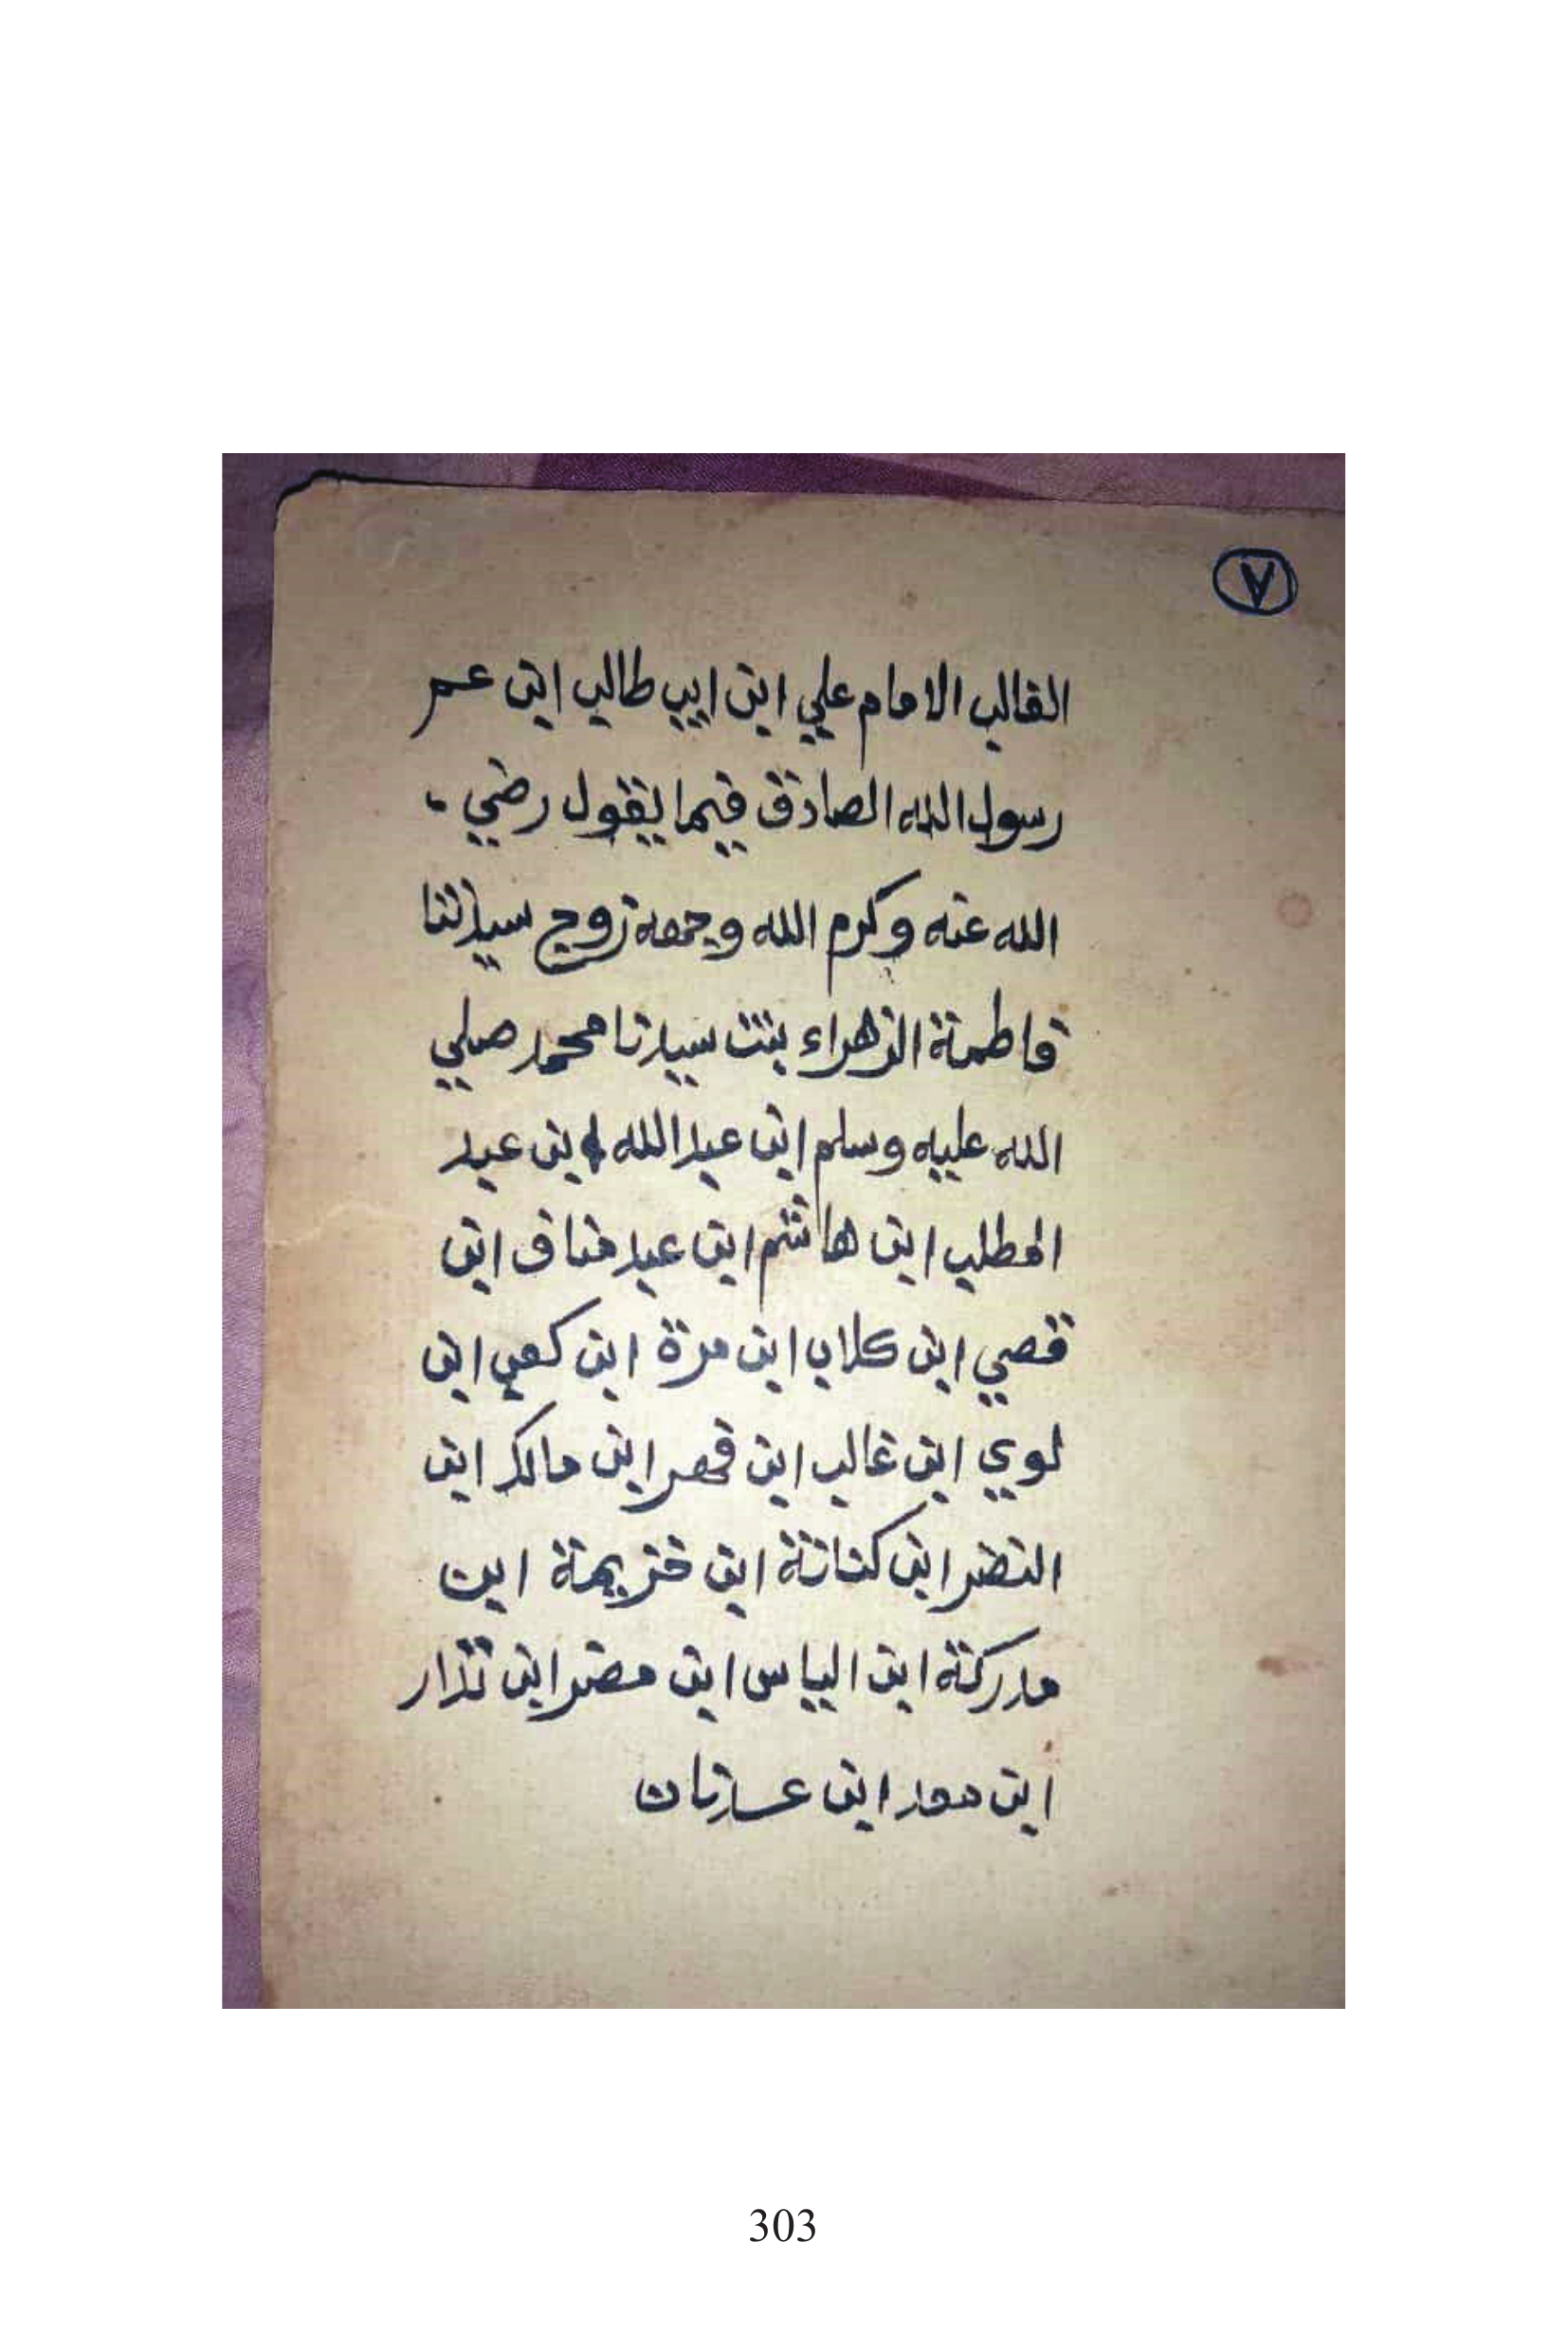 ٧
القالب الامام علي ابن ابي طالب ابن عم
رسول الله الصادق فيما يقول رضي
الله عنه وكرم الله وجهه زوج سيدتنا
فاطمة الزهراء بنت سيدنا محمد صلي
الله عليه وسلم ابن عبد الله ابن عبد
المطلب ابن هاشم ابن عبد مناف ابن
قصي ابن كلاب ابن مرة ابن كعب ابن
لوي ابن غالب ابن فهر ابن مالك ابن
النضر ابن كنانة ابن خزيمة ابن
مدركة ابن الياس ابن مضر ابن نزار
ابن معد ابن عدنان
303